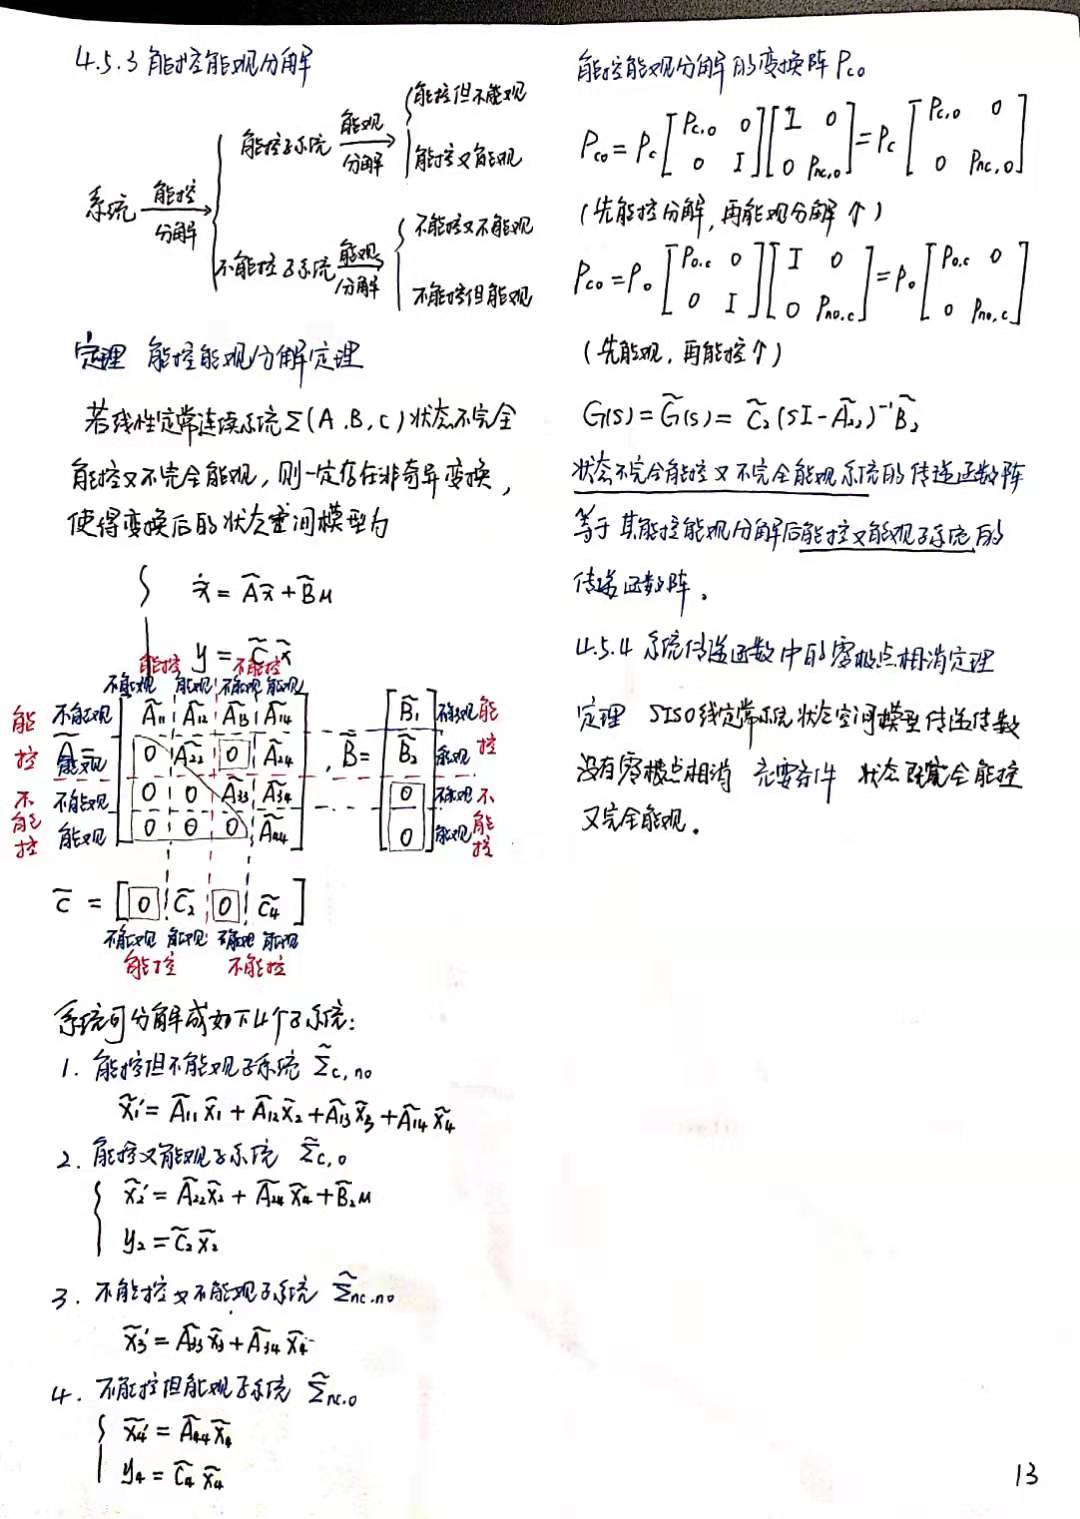 4.5.3 能控能观分解
系统 能控分解→
能控子系统 能观分解→
能控但不能观
能控又能观
不能控子系统 能观分解→
不能控又不能观
不能控但能观
定理 能控能观分解定理
若线性定常连续系统Σ(A.B,C)状态不完全
能控又不完全能观,则一定存在非奇异变换,
使得变换后的状态空间模型为
ẋ̃ = Ãx̃ + B̃u
y = C̃x̃
能控 不能控
不能观 能观 不能观 能观
能控 不能观 Ã₁₁ Ã₁₂ Ã₁₃ Ã₁₄ B̃₁ 不能观 能控
Ã= 能观 0 Ã₂₂ 0 Ã₂₄ , B̃= B̃₂ 能观
不能控 不能观 0 0 Ã₃₃ Ã₃₄ 0 不能观 不能控
能观 0 0 0 Ã₄₄ 0 能观
C̃ = [0 C̃₂ 0 C̃₄]
不能观 能观 不能观 能观
能控 不能控
系统可分解成如下4个子系统:
1. 能控但不能观子系统 Σ̃c,no
x̃₁' = Ã₁₁x̃₁ + Ã₁₂x̃₂ + Ã₁₃x̃₃ + Ã₁₄x̃₄
2. 能控又能观子系统 Σ̃c,o
x̃₂' = Ã₂₂x̃₂ + Ã₂₄x̃₄ + B̃₂u
y₂ = C̃₂x̃₂
3. 不能控又不能观子系统 Σ̃nc.no
x̃₃' = Ã₃₃x̃₃ + Ã₃₄x̃₄
4. 不能控但能观子系统 Σ̃nc.o
x̃₄' = Ã₄₄x̃₄
y₄ = C̃₄x̃₄
能控能观分解的变换阵Pco
Pco = Pc [Pc,o 0; 0 I][I 0; 0 Pnc,o] = Pc [Pc,o 0; 0 Pnc,o]
(先能控分解,再能观分解↑)
Pco = Po [Po.c 0; 0 I][I 0; 0 Pno.c] = Po [Po.c 0; 0 Pno,c]
(先能观,再能控↑)
G(s) = G̃(s) = C̃₂(sI-Ã₂₂)⁻¹B̃₂
状态不完全能控又不完全能观系统的传递函数阵
等于其能控能观分解后能控又能观子系统的
传递函数阵。
4.5.4 系统传递函数中的零极点相消定理
定理 SISO线定常系统状态空间模型传递传数
没有零极点相消 充要条件 状态既完全能控
又完全能观。
13